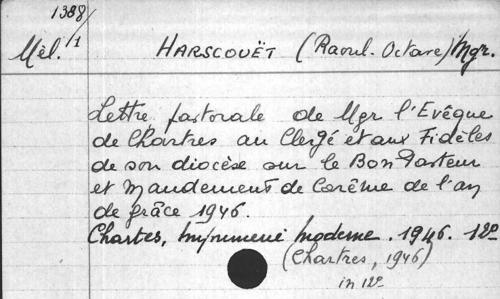 1388/1
Mél. HARSCOUËT (Raoul-Octave) Mgr.
Lettre pastorale de Mgr l'Evêque
de Chartres au Clergé et aux Fidèles
de son diocèse sur le Bon Pasteur
et Mandement de Carême de l'an
de grâce 1946.
Chartes, Imprimerie Moderne. 1946. 12º
(Chartres, 1946)
in 12º